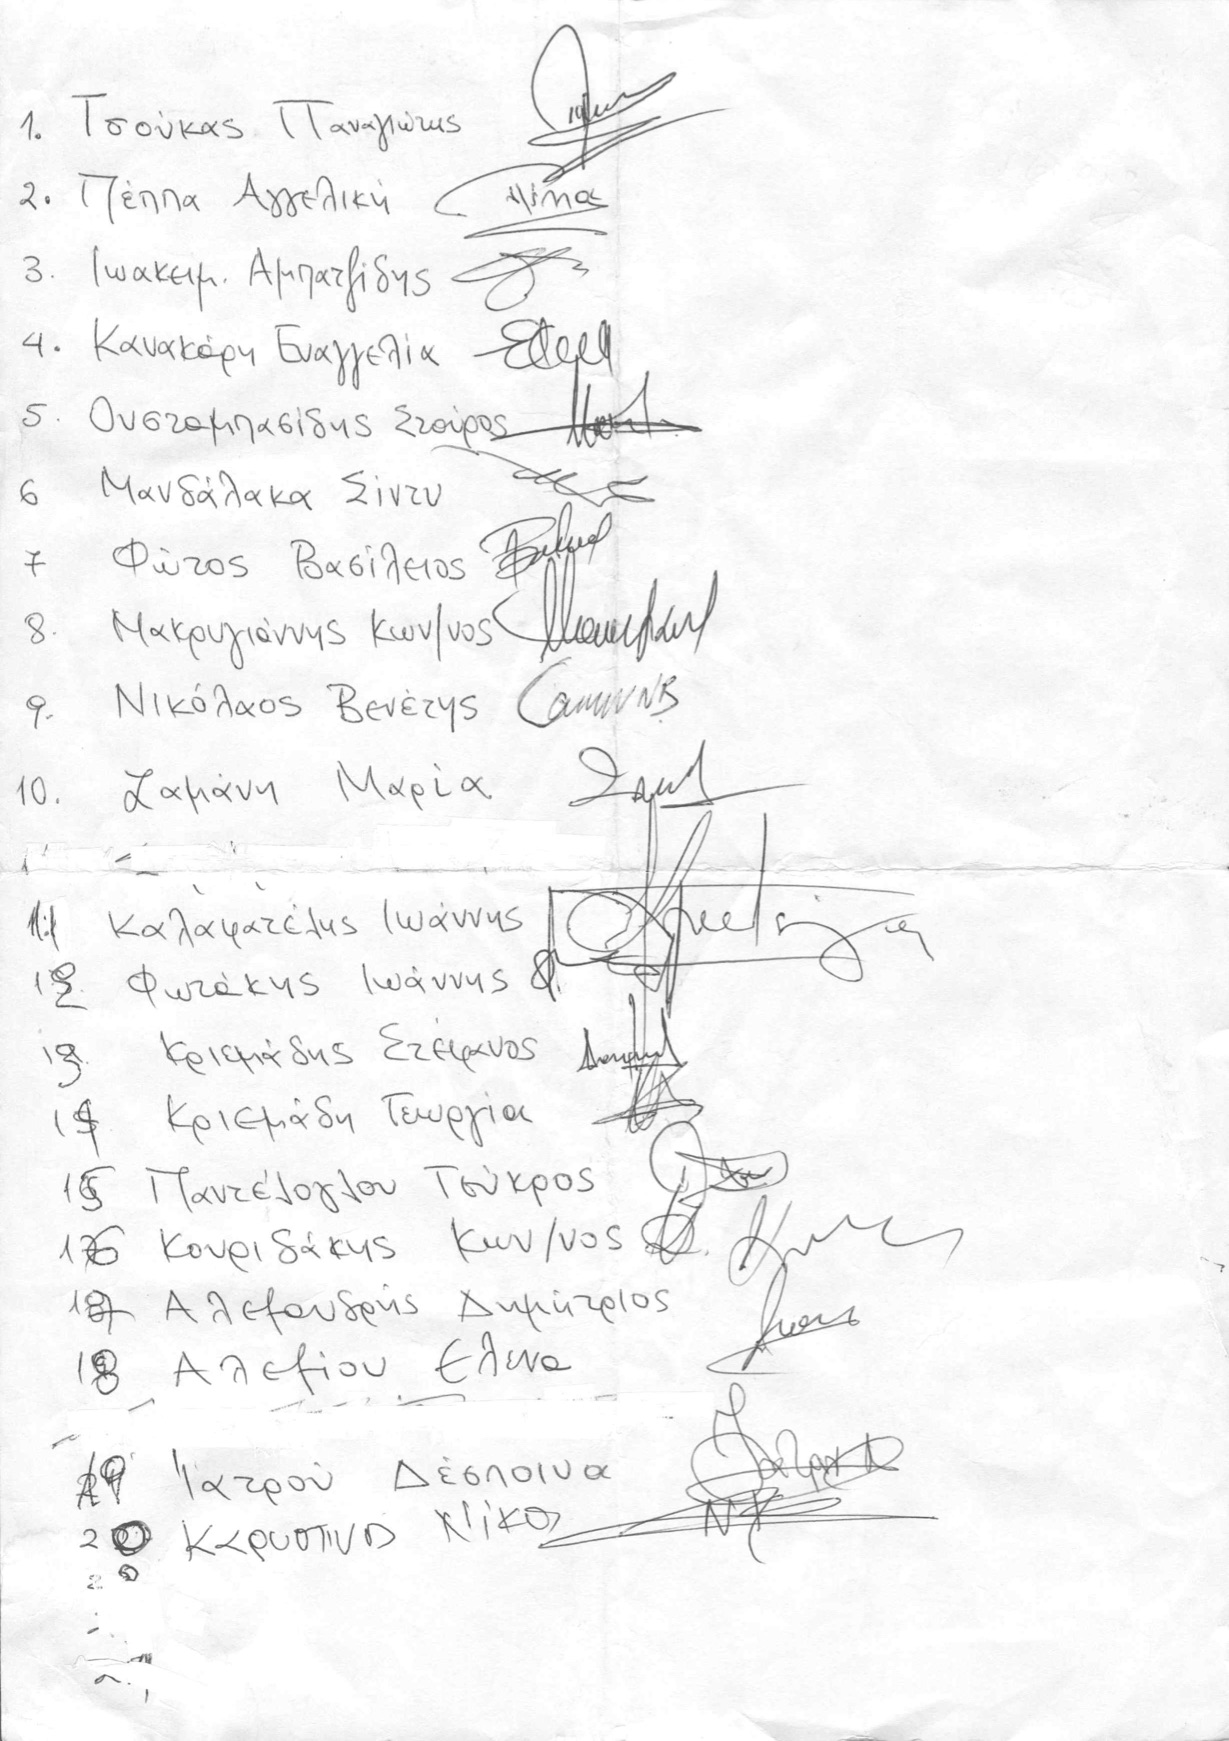 1. Τσούκας Παναγιώτης
2. Πέππα Αγγελική
3. Ιωακειμ. Αμπατζίδης
4. Κανακάρη Ευαγγελία
5. Ουσταμπασίδης Σταύρος
6 Μανδάλακα Σίντυ
7 Φώτος Βασίλειος
8. Μακρυγιάννης Κων/νος
9. Νικόλαος Βενέτης
10. Ζαμάνη Μαρία
11 Καλαφατέλης Ιωάννης
12 Φωτάκης Ιωάννης
13. Κριεμάδης Στέφανος
14 Κριεμάδη Γεωργία
15 Παντέλογλου Τεύκρος
16 Κουριδάκης Κων/νος
17 Αλεξανδρής Δημήτριος
18 Αλεξίου Έλενα
19 Ιατρού Δέσποινα
20 Νίκος